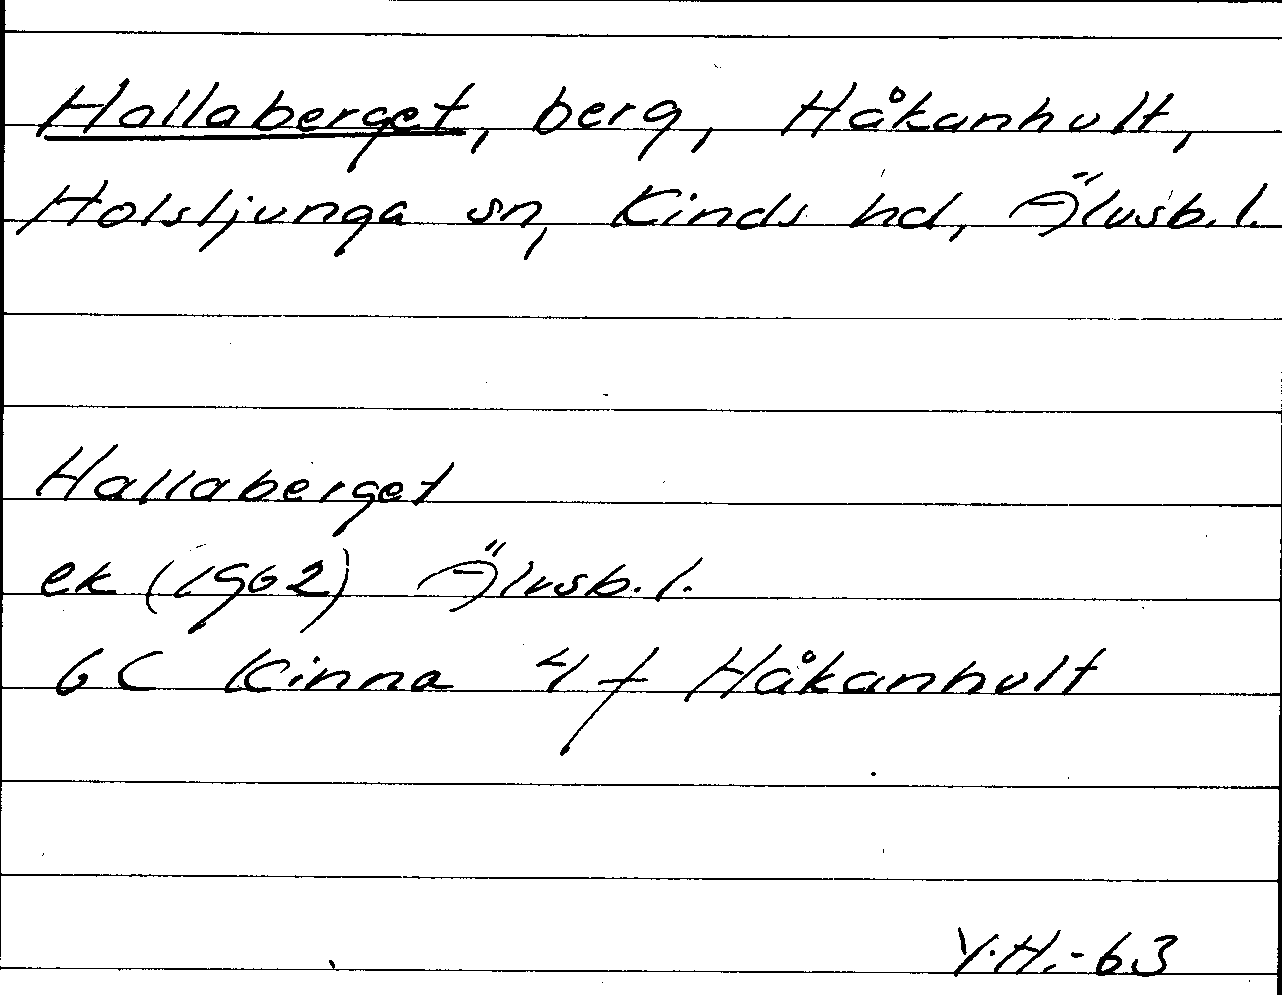 Hallaberget, berg, Håkanhult,
Holsljunga sn, Kinds hd, Älvsb. l.
Hallaberget
ek (1962) Älvsb. l.
6C Kinna 4f Håkanhult
Y.H.-63